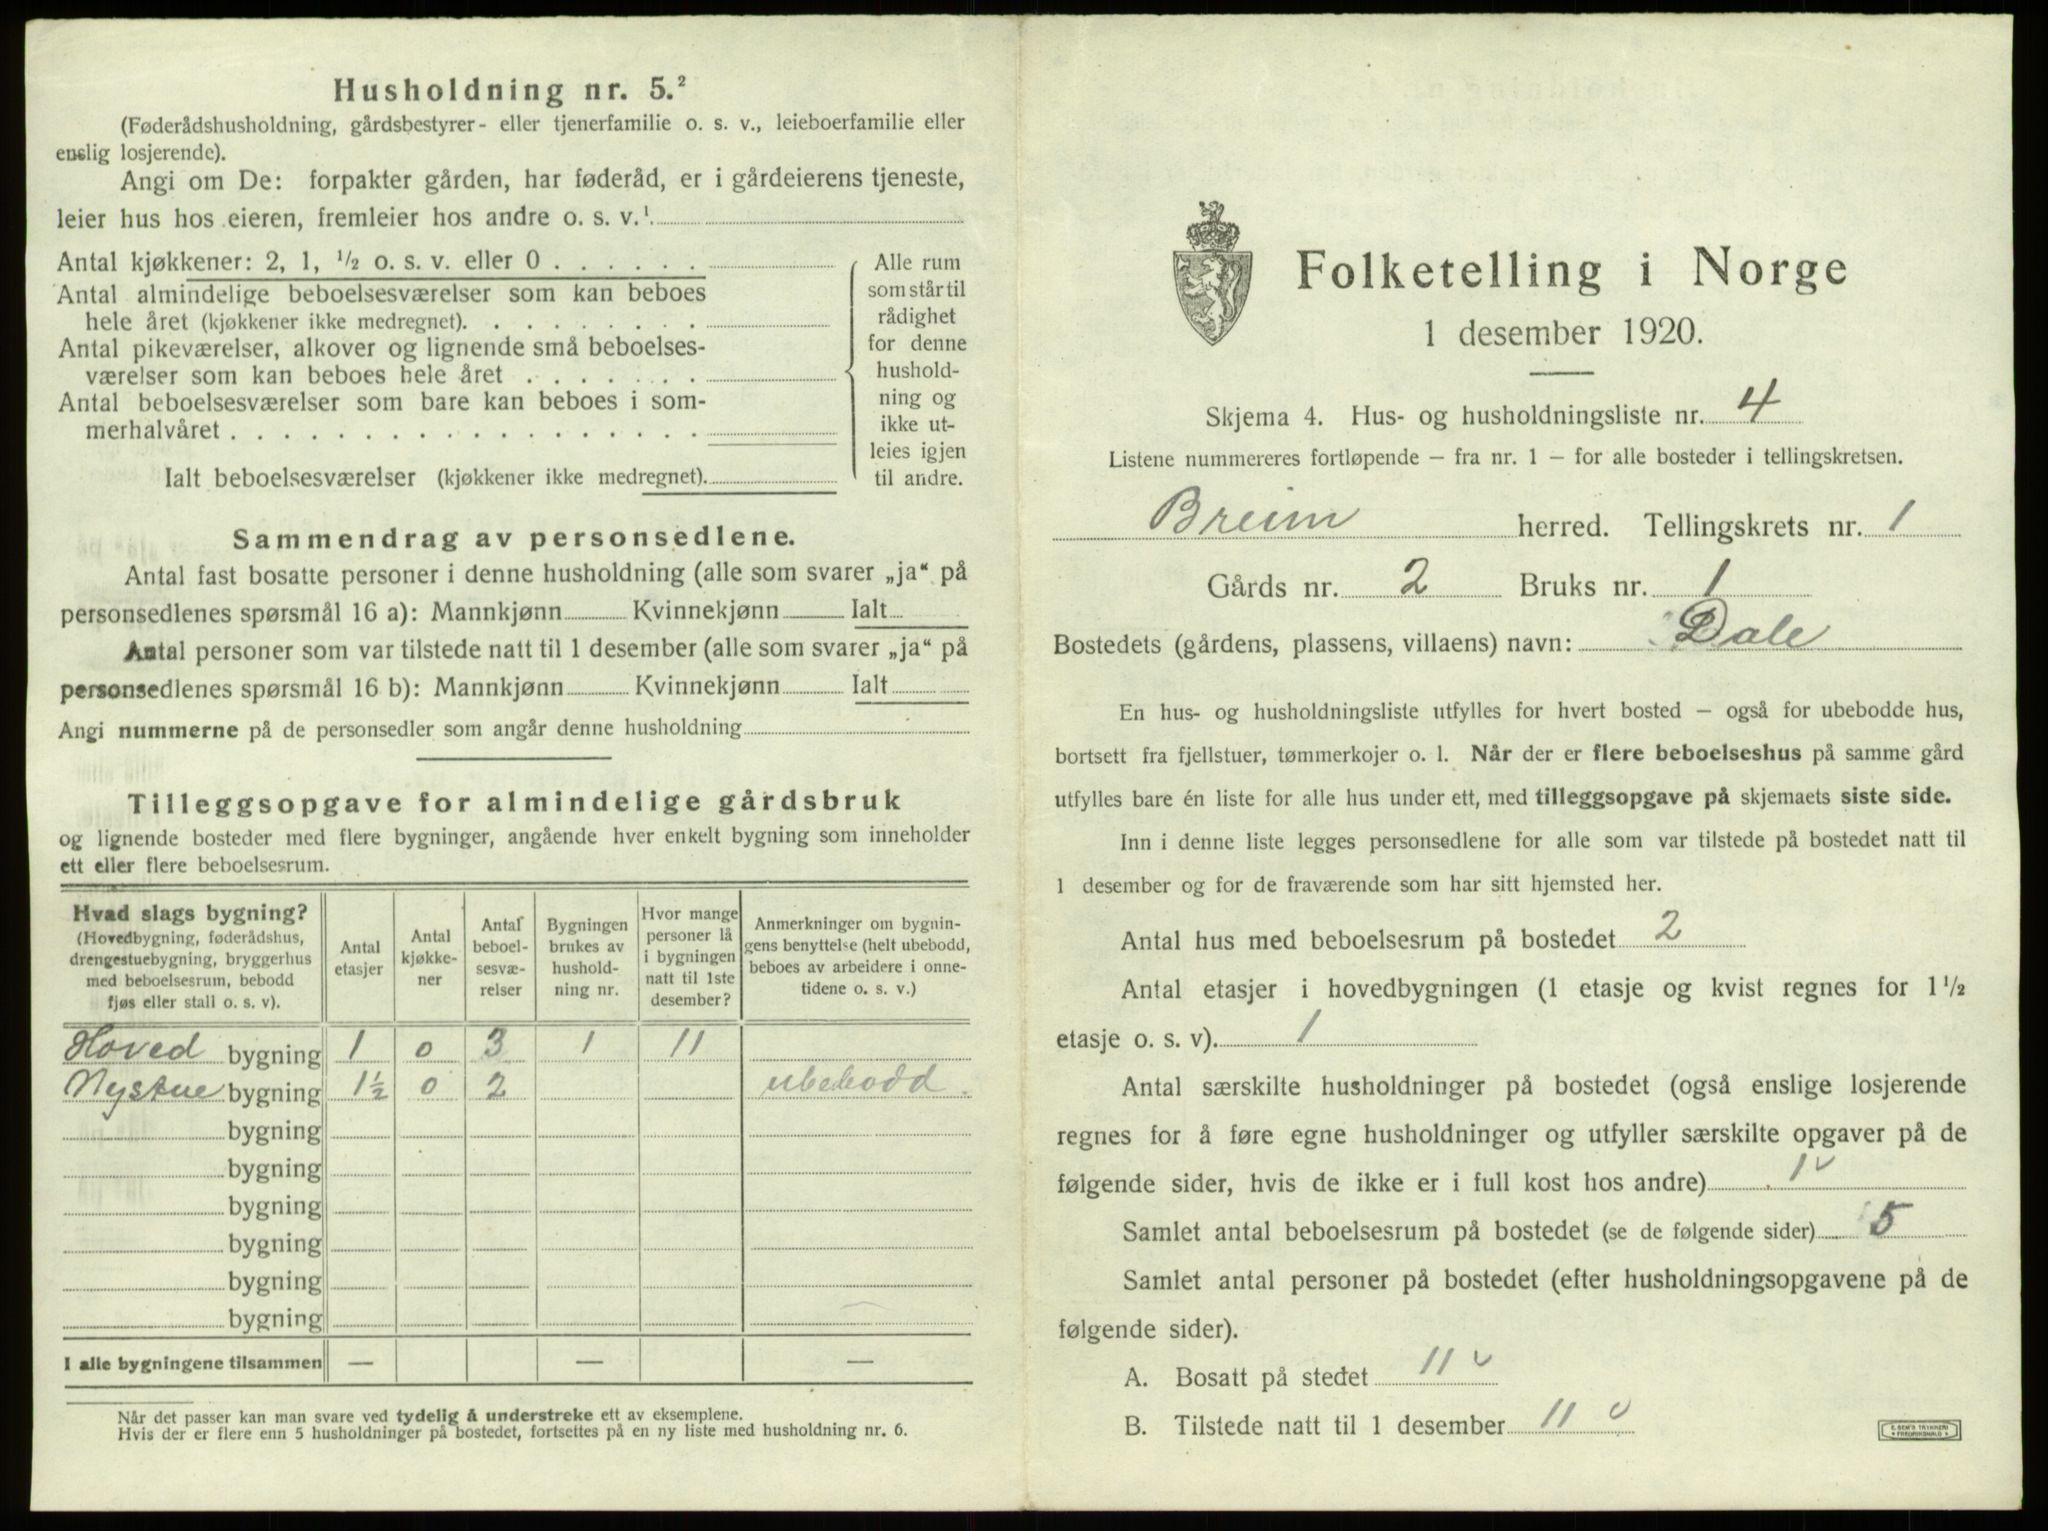 Husholdning nr. 5.²
(Føderådshusholdning, gårdsbestyrer- eller tjenerfamilie o. s. v., leieboerfamilie eller
enslig losjerende).
Angi om De: forpakter gården, har føderåd, er i gårdeierens tjeneste,
leier hus hos eieren, fremleier hos andre o. s. v.¹
Antal kjøkkener: 2, 1, ½ o. s. v. eller 0 . . . . . .
Antal almindelige beboelsesværelser som kan beboes
hele året (kjøkkener ikke medregnet). . . . . . . . .
Antal pikeværelser, alkover og lignende små beboelses-
værelser som kan beboes hele året . . . . . . .
Antal beboelsesværelser som bare kan beboes i som-
merhalvåret . . . . . . . . . . . . . . . . . .
Ialt beboelsesværelser (kjøkkener ikke medregnet).
Alle rum
som står til
rådighet
for denne
hushold-
ning og
ikke ut-
leies igjen
til andre.
Sammendrag av personsedlene.
Antal fast bosatte personer i denne husholdning (alle som svarer „ja“ på
personsedlenes spørsmål 16 a): Mannkjønn Kvinnekjønn Ialt
Antal personer som var tilstede natt til 1 desember (alle som svarer „ja“ på
personsedlenes spørsmål 16 b): Mannkjønn Kvinnekjønn Ialt
Angi nummerne på de personsedler som angår denne husholdning
Tilleggsopgave for almindelige gårdsbruk
og lignende bosteder med flere bygninger, angående hver enkelt bygning som inneholder
ett eller flere beboelsesrum.
Hvad slags bygning?
(Hovedbygning, føderådshus,
drengestuebygning, bryggerhus
med beboelsesrum, bebodd
fjøs eller stall o. s. v).
Antal
etasjer
Antal
kjøkke-
ner
Antal
beboel-
sesvæ-
relser
Bygningen
brukes av
hushold-
ning nr.
Hvor mange
personer lå
i bygningen
natt til 1ste
desember?
Anmerkninger om bygnin-
gens benyttelse (helt ubebodd,
beboes av arbeidere i onne-
tidene o. s. v.)
Hoved bygning 1 0 3 1 11
Nystue bygning 1½ 0 2 ubebodd.
bygning
bygning
bygning
bygning
bygning
bygning
I alle bygningene tilsammen — — —
Når det passer kan man svare ved tydelig å understreke ett av eksemplene.
Hvis der er flere enn 5 husholdninger på bostedet, fortsettes på en ny liste med husholdning nr. 6.
Folketelling i Norge
1 desember 1920.
Skjema 4. Hus- og husholdningsliste nr. 4
Listene nummereres fortløpende — fra nr. 1 — for alle bosteder i tellingskretsen.
Breim herred. Tellingskrets nr. 1
Gårds nr. 2 Bruks nr. 1
Bostedets (gårdens, plassens, villaens) navn: Dale
En hus- og husholdningsliste utfylles for hvert bosted — også for ubebodde hus,
bortsett fra fjellstuer, tømmerkojer o. l. Når der er flere beboelseshus på samme gård
utfylles bare én liste for alle hus under ett, med tilleggsopgave på skjemaets siste side.
Inn i denne liste legges personsedlene for alle som var tilstede på bostedet natt til
1 desember og for de fraværende som har sitt hjemsted her.
Antal hus med beboelsesrum på bostedet 2
Antal etasjer i hovedbygningen (1 etasje og kvist regnes for 1½
etasje o. s. v). 1
Antal særskilte husholdninger på bostedet (også enslige losjerende
regnes for å føre egne husholdninger og utfyller særskilte opgaver på de
følgende sider, hvis de ikke er i full kost hos andre) 1 v
Samlet antal beboelsesrum på bostedet (se de følgende sider) 5
Samlet antal personer på bostedet (efter husholdningsopgavene på de
følgende sider).
A. Bosatt på stedet 11 v
B. Tilstede natt til 1 desember 11 v
E. SEM'S TRYKKERI
FREDRIKSHALD